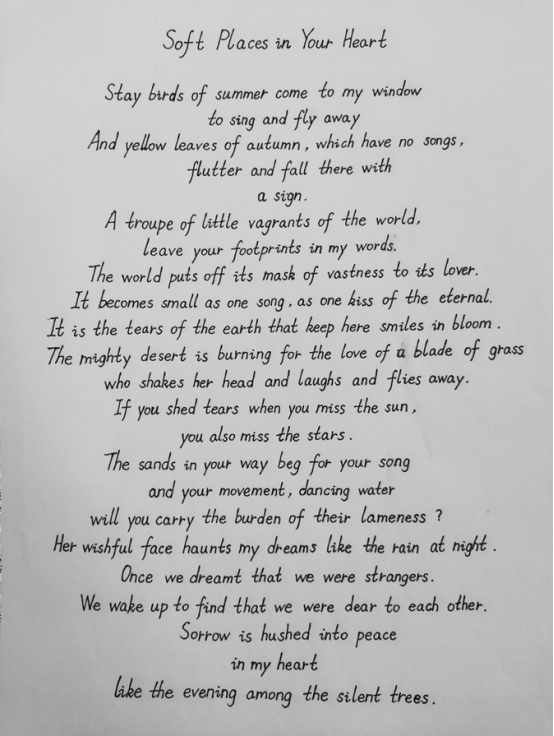 Soft Places in Your Heart
Stay birds of summer come to my window
to sing and fly away
And yellow leaves of autumn, which have no songs,
flutter and fall there with
a sign.
A troupe of little vagrants of the world,
leave your footprints in my words.
The world puts off its mask of vastness to its lover.
It becomes small as one song, as one kiss of the eternal.
It is the tears of the earth that keep here smiles in bloom.
The mighty desert is burning for the love of a blade of grass
who shakes her head and laughs and flies away.
If you shed tears when you miss the sun,
you also miss the stars.
The sands in your way beg for your song
and your movement, dancing water
will you carry the burden of their lameness?
Her wishful face haunts my dreams like the rain at night.
Once we dreamt that we were strangers.
We wake up to find that we were dear to each other.
Sorrow is hushed into peace
in my heart
like the evening among the silent trees.